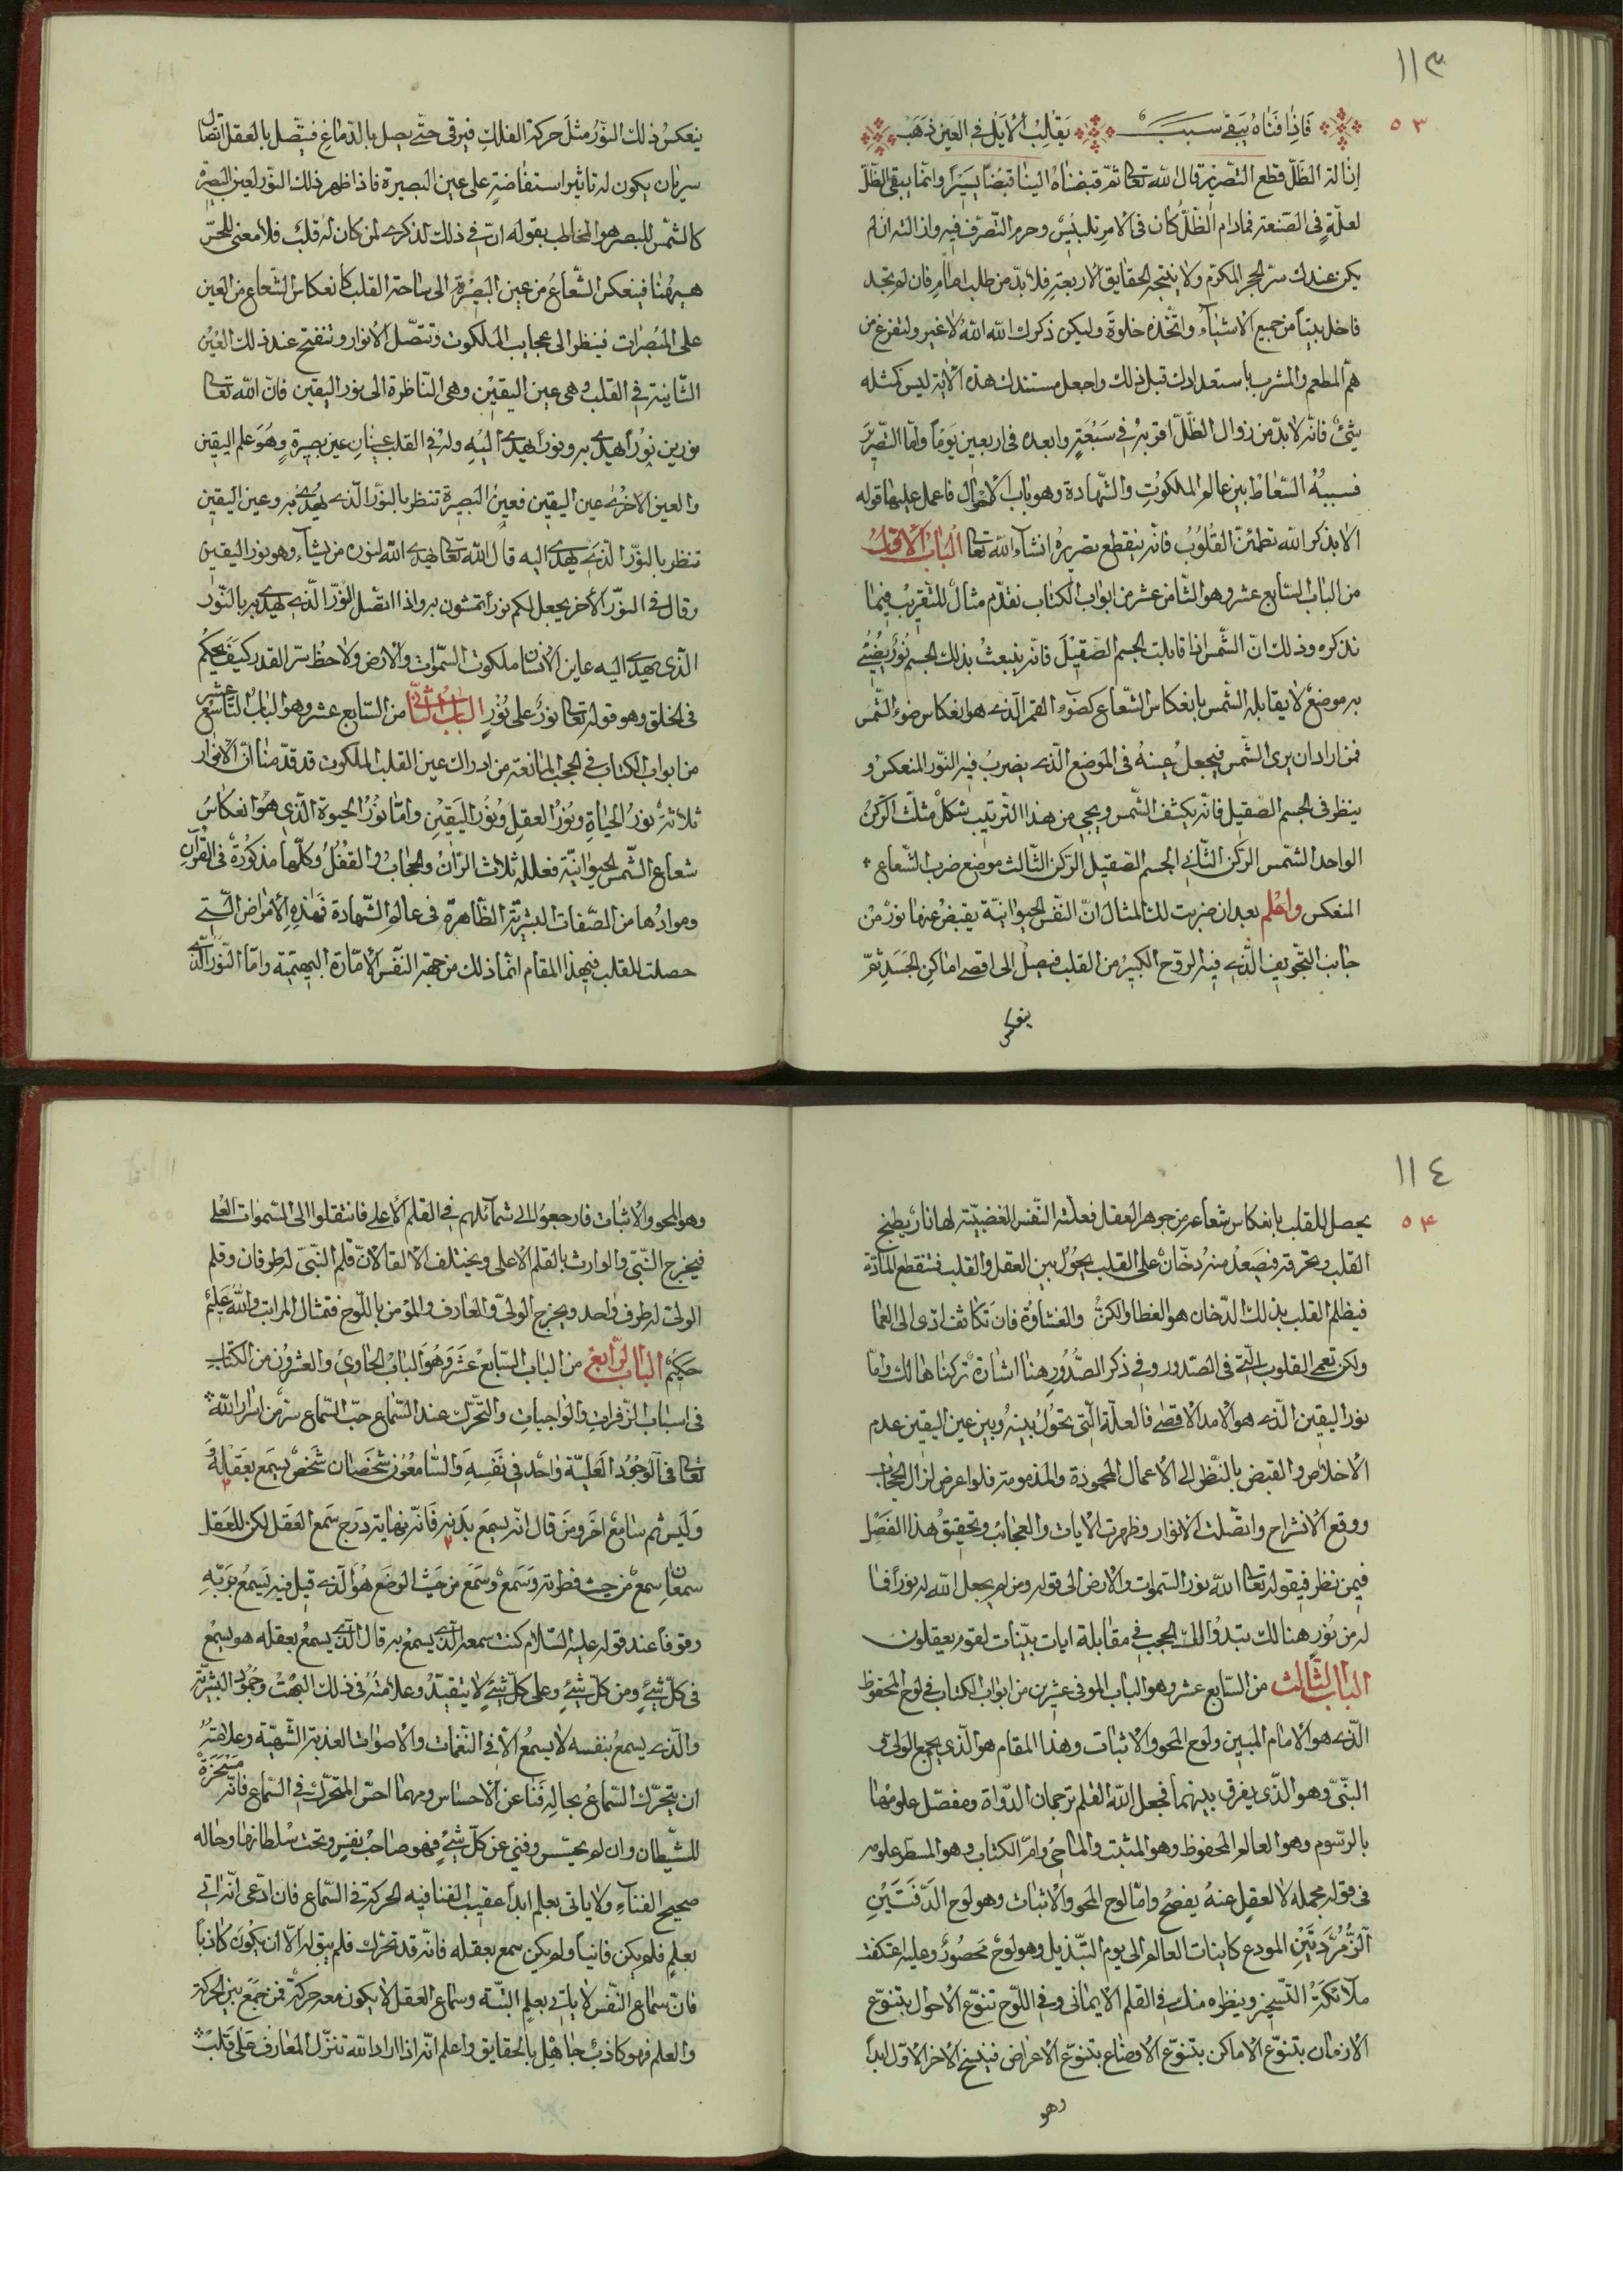 ١١٣
٥٣
فَاِذٰا فَنٰاهُ يَبْقى سَبَبٌ يَقْلِبُ الْاٰيِلَ فِي العَيْنِ ذَهَبْ
ازالة الظّلّ قطع التصرّين قال الله تعالى ثمّ قبضناهُ الينا قبضًا يسيرًا وانّما يبقى الظّلّ
لعلّةٍ في الصّنعة فمادام الظّلّ كان في الامر تلبيسٌ وحرم التّصرّف فيه وازالته ان لم
يكن عندك سرّ الحجر المكرّم ولا ينتجه الحقايق الاربعة فلا بدّ من طلب امامٍ فان لم تجد
فاخل بيتًا من جميع الاشيآء واتّخذه خلوةً وليكن ذكرك الله الله لا غير ولتفرغ من
همّ المطعم والمشرب باستعدادك قبل ذلك واجعل مستندك هذه الاٰية ليس كمثله
شئ فانّه لا بدّ من زوال الظّلّ اقربهُ في سَبْعَةٍ وابعده في اربعين يَوْمًا وامّا التصرير
فسببهُ الشّعاط بين عالم الملكوت والشّهادة وهو باب الاحوال فاعمل عليها قوله
الا بذكر الله تطمئنّ القُلوُبُ فانّه ينقطع تصريرهُ انشآء الله تعالى البَابُ الأوّل
من الباب السّابع عشر وهو الثّامن عشر من ابواب الكتاب نقدّم مثالًا للتّقريب فيما
نذكره وذلك انّ الشّمس اذا قابلت الجسم الصّقيل فانّه ينبعث بذلك الجسم نُورٌ يُضيئُ
به موضعٌ لا يقابله الشمس بانعكاس الشّعاع كضوَء القمر الّذى هو انعكاس ضوء الشّمس
فمن اراد ان يرى الشّمس فيجعل عينهُ في الموضع الّذى يضرب فيه النّور المنعكس و
ينظر في الجسم الصّقيل فانّه يكشف الشّمس ويجي من هذا التّرتيب شكل مثلّث الرّكن
الواحد الشّمس الرّكن الثّانى الجسم الصّقيل الرّكن الثّالث موضع ضرب الشّعاع
المنعكس واعلم بعد ان ضربت لك المثال انّ النّفس الحيوانيّة يقبض عنها نورٌ من
جانب التّجويف الّذى فيه الرّوح الكبير من القلب فيصل الى اقصى اماكن الجَسَدِ ثمّ
ينعكس
ينعكسُ ذلك النّورُ مثل حركة الفلك فيرقى حتّى يصل بالدّماغ فيتّصل بالعقل اتّصال
سريان يكون له تاثير استفاضةٍ على عين البصيرة فاذا ظهر ذلك النّور لعين البصيرة
كالشمس للبصر هو المخاطب بقوله انّ في ذلك لذكرى لمن كان له قلب فلا معنى للحسّ
هيهُنا فينعكس الشّعاعُ من عين البصيرة الى ساحة القلب كانعكاس الشّعاع من العين
على المبصرات فينظر الى عجايب الملكوت وتتّصل الانوار وتنفتح عند ذلك العَيْن
الثّانية في القلب وهى عين اليقين وهى النّاظرة الى نور اليقين فانّ الله تعالى
نورين نورًا يهدى به ونورًا يهدى اليْهِ وله في القلب عينان عين بصيرةٍ وهُوَ علم اليقين
والعين الاخرى عين اليقين فعين البَصيرة تنظر بالنّور الّذى يُهدى به وعين اليقين
تنظر بالنّور الّذى يهدى اليه قال الله تعالى يهدى الله لنوره من يشآء وهو نور اليقين
وقال في النّور الأخر يجعل لكم نورًا تمشون به واذا اتصل النّور الّذى يهدى به بالنّور
الّذى يهدى اليه عاين الانسان ملكوت السّموٰات والأرض ولاحظ سرّ القدر كيف يحكم
في الخلق وهو قوله تعالى نورٌ على نُورٍ الباب الثّانى من السّابع عشر وهو الباب التّاسع عشر
من ابواب الكتاب في الحجب المانعة من ادراك عين القلب الملكوت قد قدّمنا انّ الانوار
ثلاثةٌ نورُ الحياةِ ونُورُ العقل ونُورُ اليَقين وامّا نُورُ الحيوة الّذى هُوَ انعكاسُ
شعاع الشّمس الحيوانيّة فعلله ثلاث الرّانُ والحجابُ والقفلُ وكلّها مذكورةٌ في القرآن
وموادُها من الصّفات البشريّة الظّاهرة في عالم الشّهادة فهٰذهِ الأمراض الّتى
حصلت للقلب فيهذا المقام انّما ذلك من جهة النّفس الأمّارة البهيميّة وامّا النّور الّذى
١١٤
٥٤
يحصل للقلب بانعكاس شعاعه من جوهر العقل فعلّته النّفس الغضبيّة لها نارٌ يطبخ
القلب ويحرقه فيصَعدُ منه دخّانٌ على القلب يحُولُ بين العقل والقلب فتنقطع المادّة
فيظلم القلب بذلك الدّخان هو الغطا والكنّ والغشاوة فان تكاثف ادّى الى العما
ولكن تعمى القلوب الّتى في الصّدور وفي ذكر الصُّدُورِ هنا اشارة تركناها لك وامّا
نور اليقين الّذى هو الأمد الاقصى فالعلّة الّتى تحولُ بينهُ وبين عين اليقين عدم
الاخلاص والقبض بالنّظر الى الأعمال المحمودة والمذمومة فلو اعرض لزال الحجاب
ووقع الانشراح واتّصلت الانوار وظهرت الايات والعجائب وتحقيق هذا الفَصْل
فيمن نظر فيقوله تعالى الله نور السّموات والارض الى قوله ومن لم يجعل الله له نورًا فما
له من نُورٍ هنالك تبدُوا لك الحجب في مقابلة ايات بيّنات لقومٍ يعقلون
الباب الثّالث من السّابع عشر وهو الباب الموفى عشرين من ابواب الكتاب في لوح المحفوظ
الّذى هو الامام المبين ولوح المحو والاثبات وهذا المقام هو الّذى يجمع الولى و
النبىّ وهو الّذى يفرق بينهما فجعل الله القلم ترجمان الدّواة ومفصّل علومها
بالرّسوم وهو العالم المحفوظ وهو المثبت والماحى وامّ الكتاب وهو المسطّر علومه
في قوله مجمله لا لعقلٍ عنهُ يفصح وامّا لوح المحو والاثبات وهو لوح الدّفّتَيْنِ
الزّمُرّدَتَيْنِ المودع كاينات العالم الى يوم التّبديل وهو لوحٌ محصُورٌ وعليه اعتكفت
ملآئكة التّسخير وينظره منك في القلم الايمانى وفي اللّوح تنوّع الاحوال بتنوّع
الازمان بتنوّع الاماكن بتنوّع الاوضاع بتنوّع الاعراض فينسخ الاخر الاوّل ابدًا
وهو
وهو المحو والاثبات فارجعوا الى شمآئلهم في القلم الاعلى فانتقلوا الى السّموات العُلى
فيخرج النّبىّ والوارث بالقلم الاعلى ويختلف الالقا لانّ قلم النّبىّ له طوفان وقلم
الولىّ له طرف واحد ويخرج الولىّ والعارف والمؤمن باللّوح فتمثال المراتب والله عَليمٌ
حَكيمٌ الباب الرّابع من الباب السّابع عَشَرَ وَهُوَ البابُ الحَاوي والعشرون من الكتاب
في اسباب الزّفرات والواجبات والتّحرّك عند السّماع حبّ السّماع سرٌّ من اسرار الله
تعالى في الوجُود العَليّة واحدٌ في نَفسِه والسّامعُون شخصَان شخصٌ يسمع بعَقلِهِ
وَلَيسَ ثم سَامعٌ اخر ومَن قال انّه يسمع بَدنِه فَانّه نهاية دَرج سَمع العَقل لكن للعَقل
سمعان سمعٌ من حيث فطرته وَسَمعٌ وسَمعٌ من حيث الوضع هُو الّذى قيل فيه يَسمع بَربّهِ
وقوفًا عند قوله عليه السّلام كنت سمعه الّذى يسمع به قال الّذى يسمع بعقله هو يسمع
في كلّ شيءٍ ومن كلّ شيءٍ وعلى كلّ شيءٍ لا يتقيّدُ وعلامتُهُ في ذلك البُهت وجُمُود البشريّة
والّذى يسمعُ بنفسه لا يسمعُ الّا في النّغمات والأصوات العذبة الشّهيّة وعلامتُهُ
ان يتحرّك السّماعُ بحالةِ فَنا عن الأحساس ومهما احسّ المتحرّك في السّماع فانّه مَسْخَرَةٌ
للشّيطان وان لم يحسّ وفنى عن كلّ شيءٍ فهو صاحبُ نفسٍ وتحت سُلطانها وحاله
صحيح الفنآء ولا ياتى بعلم ابدًا عقيب الفنا فيه الحركة في السّماع فان ادّعى انّه اتى
بعلمٍ فلم يكن فانيًا ولم يكن سمع بعقله فانّه قد تحرّك فلم يبق له الّا ان يكونَ كاذبًا
فانّ سماع النّفس لا ياتى بعلم البتّة وسماع العقل لا يكون معه حركة فمن جَمَعَ بين الحركة
والعلم فهو كاذبٌ جاهل بالحقايق واعلم انّه اذا اراد الله تنزّل المعارف على قلبٍ